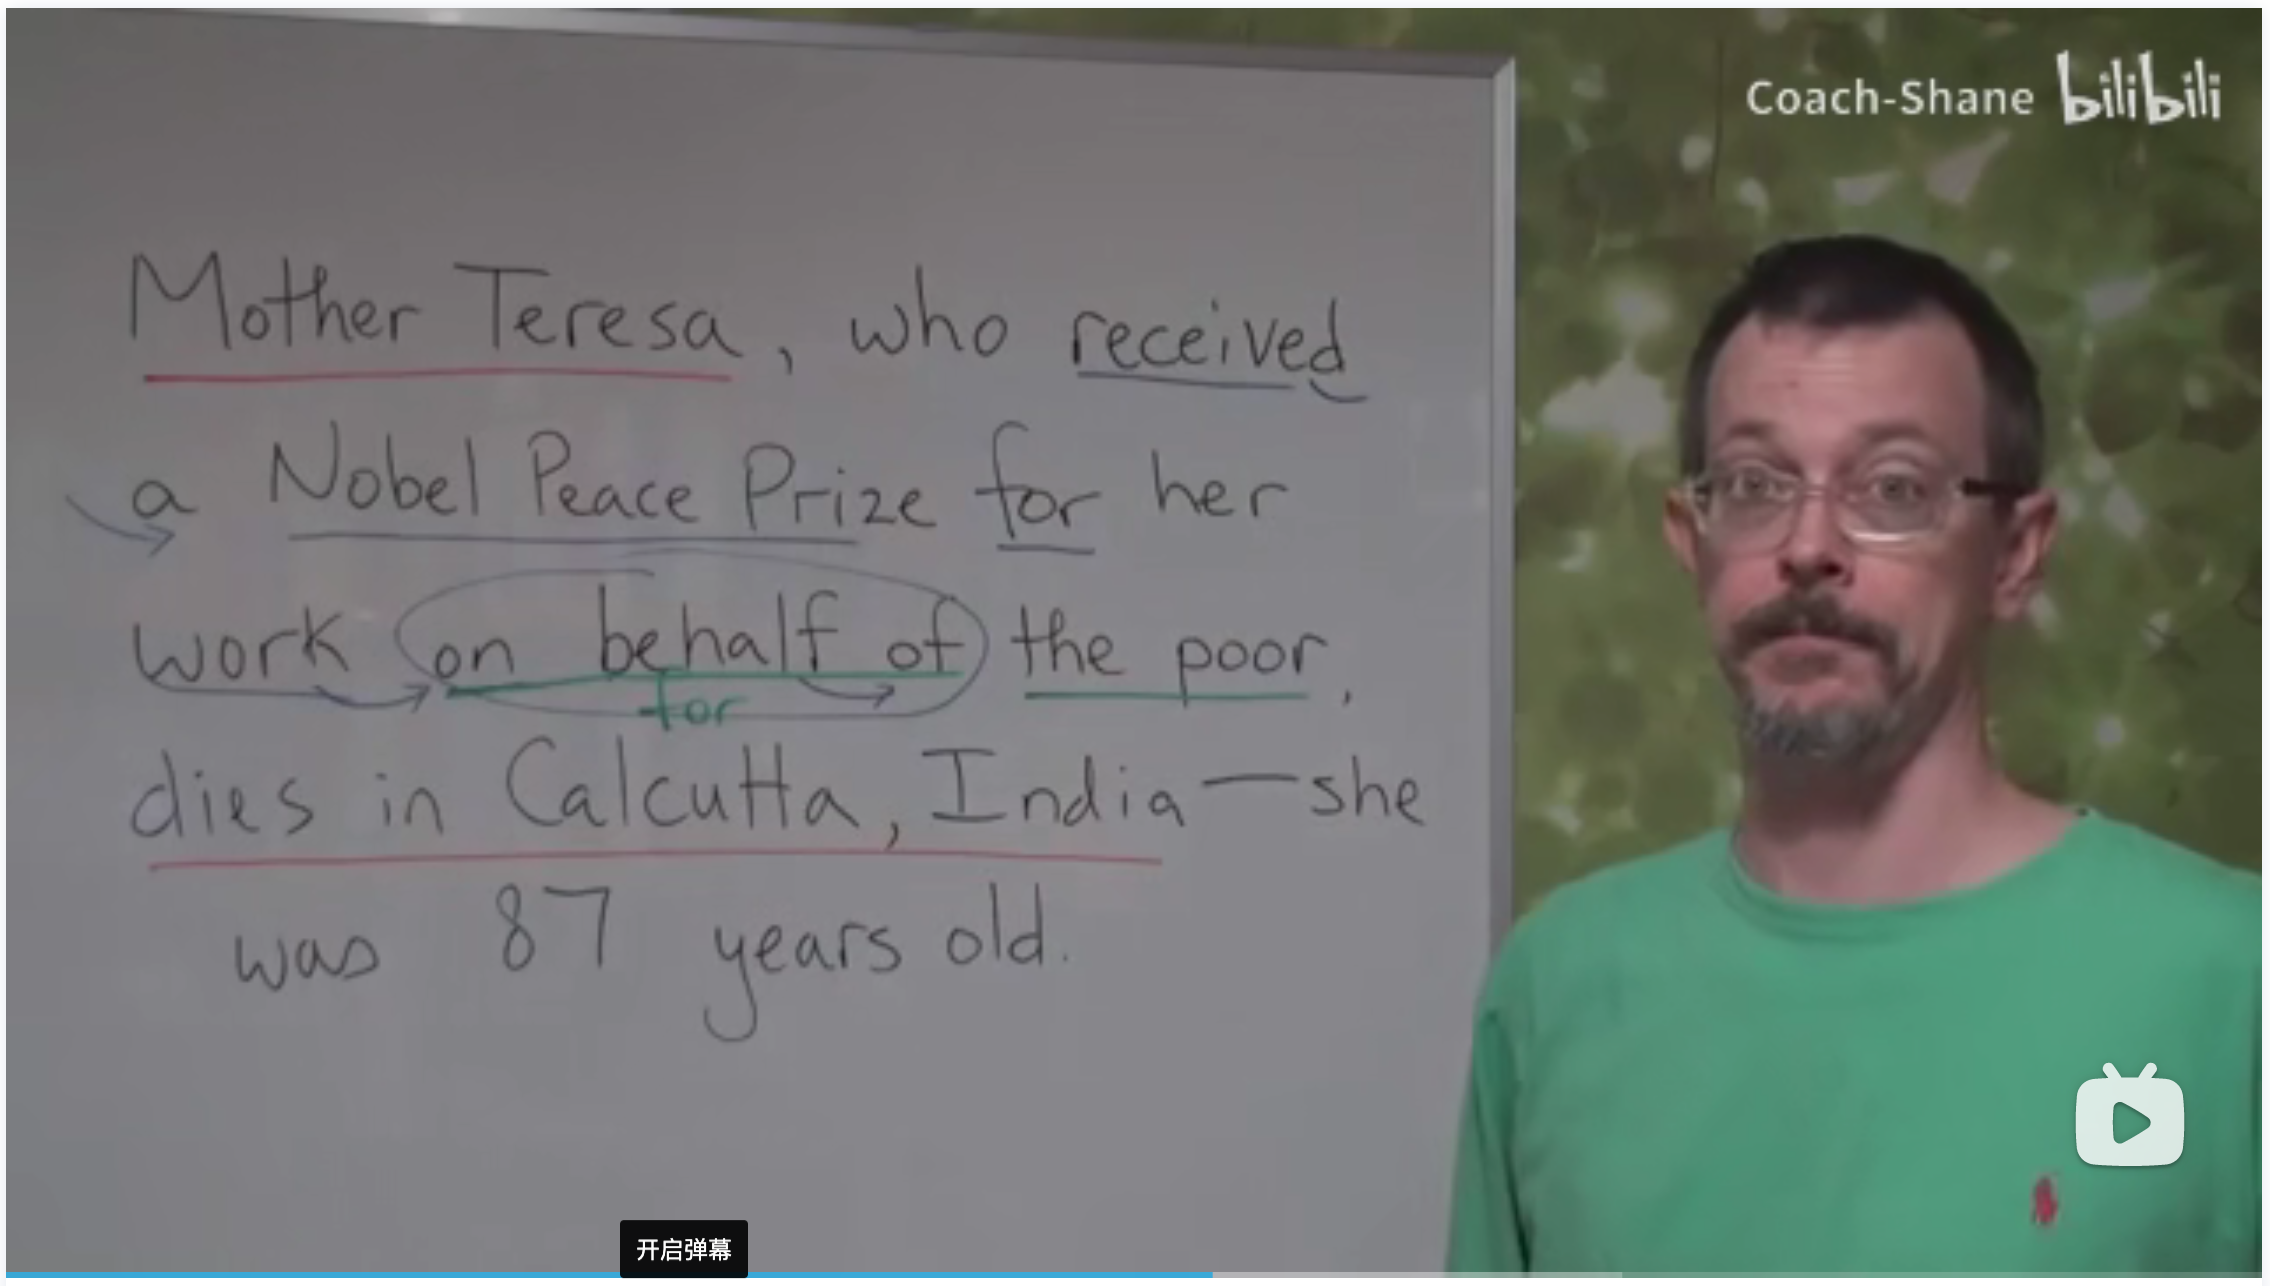 Coach-Shane bilibili
Mother Teresa, who received
a Nobel Peace Prize for her
work on behalf of the poor,
for
dies in Calcutta, India—she
was 87 years old.
开启弹幕